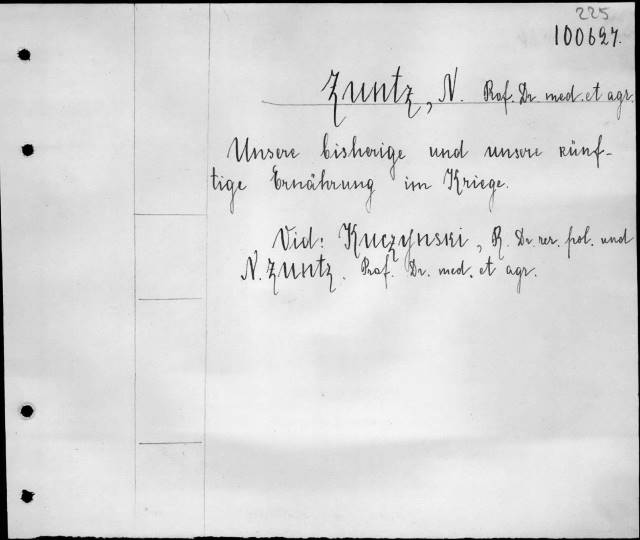 225
100627.
Zuntz, N. Prof. Dr. med. et agr.
Unsere bisherige und unsere künf-
tige Ernährung im Kriege.
Vid: Kuczynski, R. Dr. rer. pol. und
N. Zuntz. Prof. Dr. med. et agr.